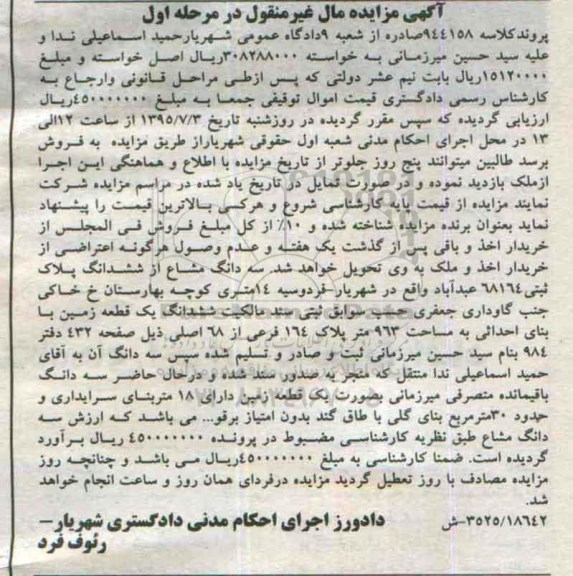 آگهی مزایده مال غیرمنقول در مرحله اول
پروندکلاسه ۹۴۴۱۵۸صادره از شعبه ۹دادگاه عمومی شهریارحمید اسماعیلی ندا و
علیه سید حسین میرزمانی به خواسته ۳۰۸۲۸۸۰۰۰ریال اصل خواسته و مبلغ
۱۵۱۲۰۰۰۰ریال بابت نیم عشر دولتی که پس ازطی مراحل قانونی وارجاع به
کارشناس رسمی دادگستری قیمت اموال توقیفی جمعا به مبلغ ۴۵۰۰۰۰۰۰۰۰ریال
ارزیابی گردیده که سپس مقرر گردیده در روزشنبه تاریخ ۱۳۹۵/۷/۳ از ساعت ۱۲الی
۱۳ در محل اجرای احکام مدنی شعبه اول حقوقی شهریاراز طریق مزایده به فروش
برسد طالبین میتوانند پنج روز جلوتر از تاریخ مزایده با اطلاع و هماهنگی این اجرا
ازملک بازدید نموده و در صورت تمایل در تاریخ یاد شده در مراسم مزایده شرکت
نمایند مزایده از قیمت پایه کارشناسی شروع و هرکسی بالاترین قیمت را پیشنهاد
نماید بعنوان برنده مزایده شناخته شده و ۱۰٪ از کل مبلغ فروش فی المجلس از
خریدار اخذ و باقی پس از گذشت یک هفته و عدم وصول هرگونه اعتراضی از
خریدار اخذ و ملک به وی تحویل خواهد شد. سه دانگ مشاع از ششدانگ پلاک
ثبتی ۶۸۱۶۴ عبدآباد واقع در شهریار-فردوسیه ۱۴متری کوچه بهارستان خ خاکی
جنب گاوداری جعفری حسب سوابق ثبتی سند مالکیت ششدانگ یک قطعه زمین با
بنای احداثی به مساحت ۹۶۳ متر پلاک ۱۶۴ فرعی از ۶۸ اصلی ذیل صفحه ۴۳۲ دفتر
۹۸۴ بنام سید حسین میرزمانی ثبت و صادر و تسلیم شده سپس سه دانگ آن به آقای
حمید اسماعیلی ندا منتقل که منجر به صدور سند شده و درحال حاضر سه دانگ
باقیمانده متصرفی میرزمانی بصورت یک قطعه زمین دارای ۱۸ متربنای سرایداری و
حدود ۳۰مترمربع بنای گلی با طاق گند بدون امتیاز برقو... می باشد که ارزش سه
دانگ مشاع طبق نظریه کارشناسی مضبوط در پرونده ۴۵۰۰۰۰۰۰۰۰ ریال برآورد
گردیده است. ضمنا کارشناسی به مبلغ ۴۵۰۰۰۰۰۰۰۰ریال می باشد و چنانچه روز
مزایده مصادف با روز تعطیل گردید مزایده درفردای همان روز و ساعت انجام خواهد
شد.
۳۵۲۵/۱۸۶۴۲-ش دادورز اجرای احکام مدنی دادگستری شهریار-
رئوف فرد